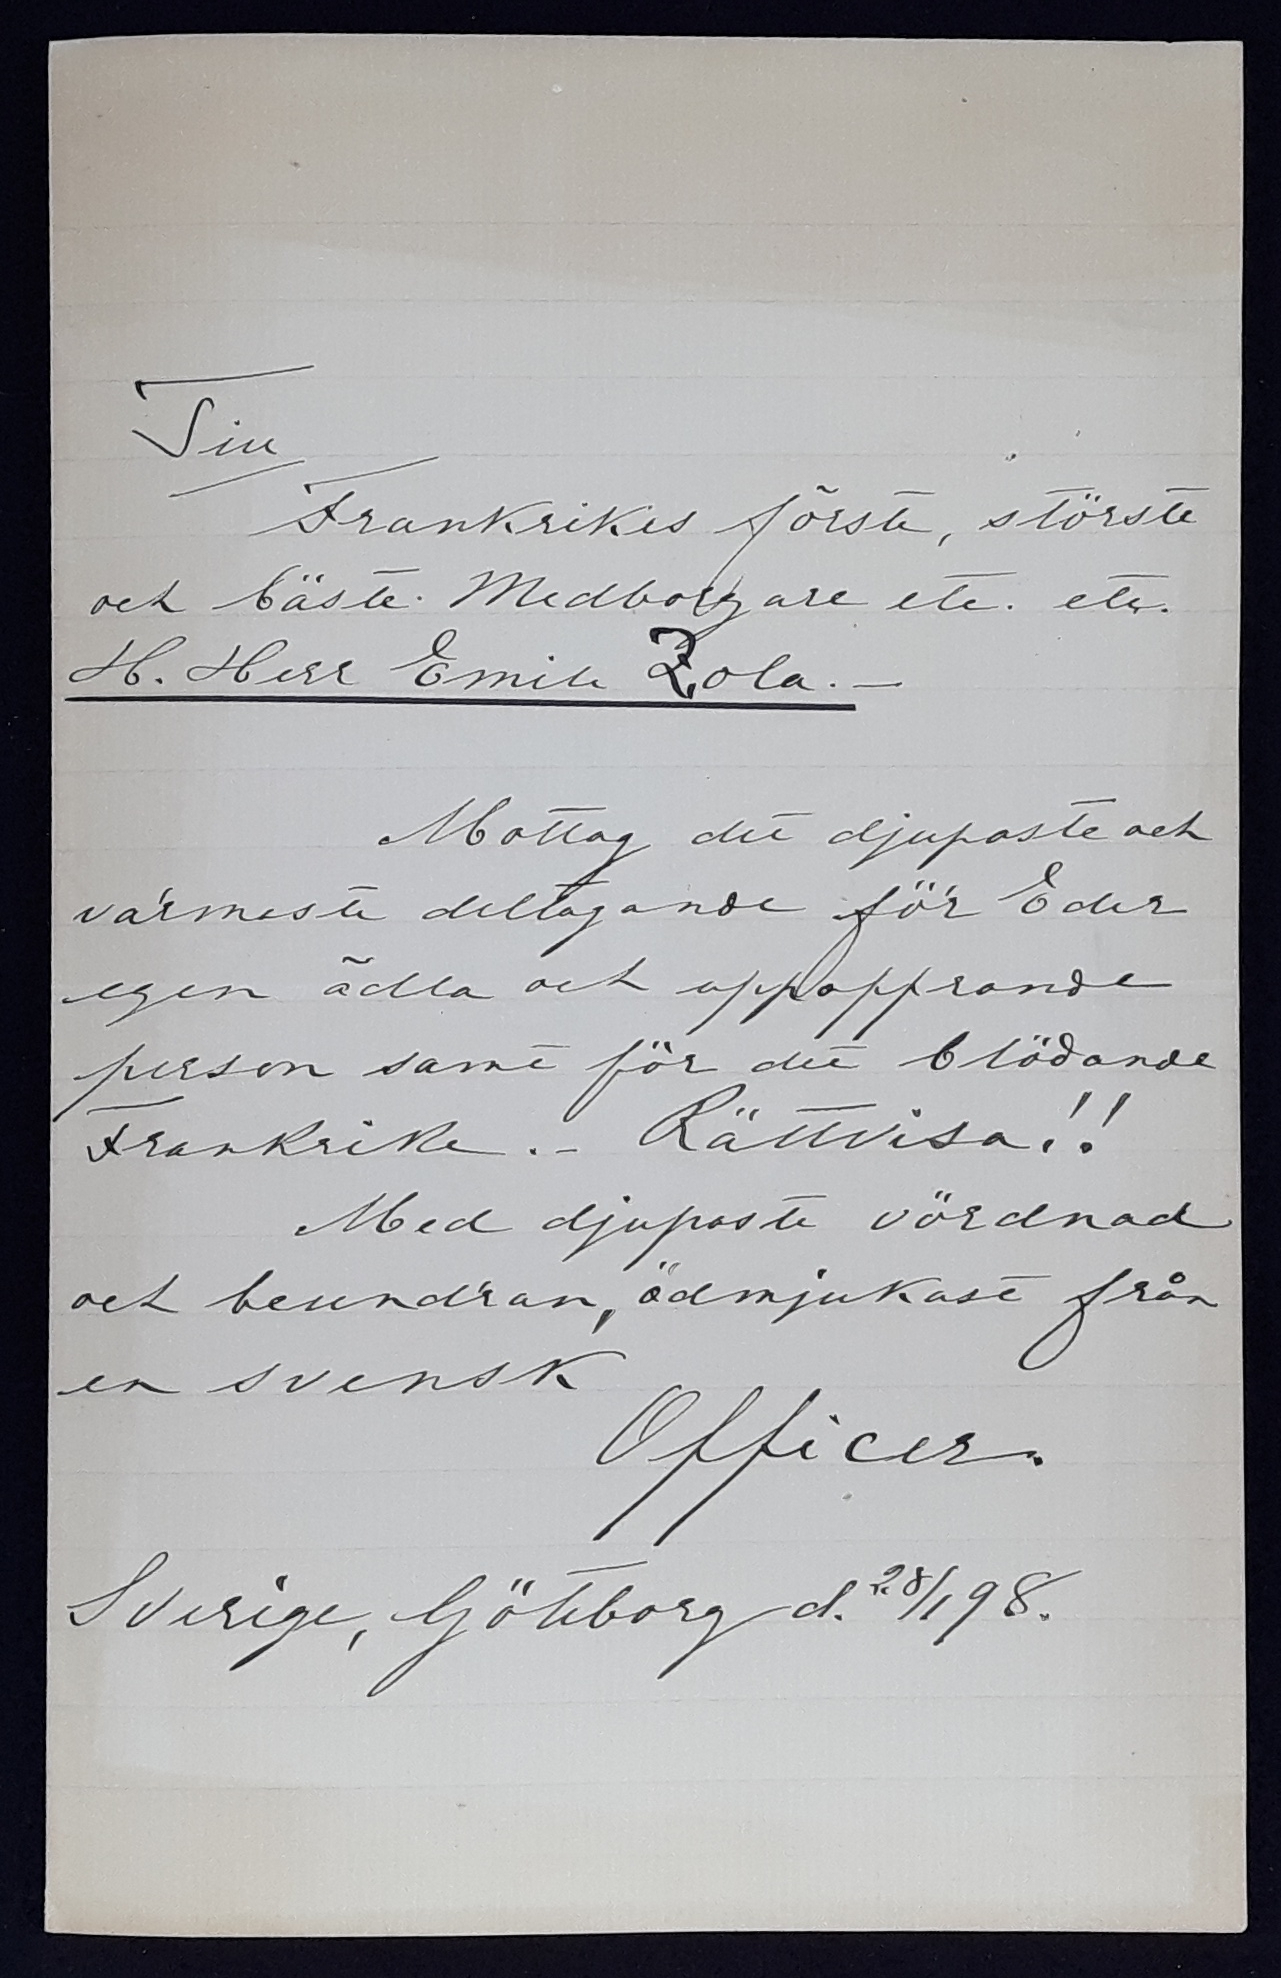 Till
Frankrikes förste, störste
och bäste Medborgare etc. etc.
H. Herr Emile Zola.—
Mottag det djupaste och
värmeste deltagande för Eder
egen ädla och uppoffrande
person samt för det blödande
Frankrike.— Rättvisa!!
Med djupaste vördnad
och beundran, ödmjukast från
en svensk
Officer.
Sverige, Göteborg d. 28/1 98.